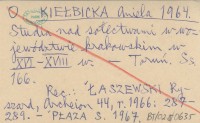 KIEŁBICKA Aniela 1964.
Studia nad sołectwami w wo-
jewództwie krakowskim w
XVI-XVIII w. — Toruń, Ss.
166.
Rec.: ŁASZEWSKI Ry-
szard, Archeion 44, r. 1966: 287-
289. – PŁAZA S. 1967.